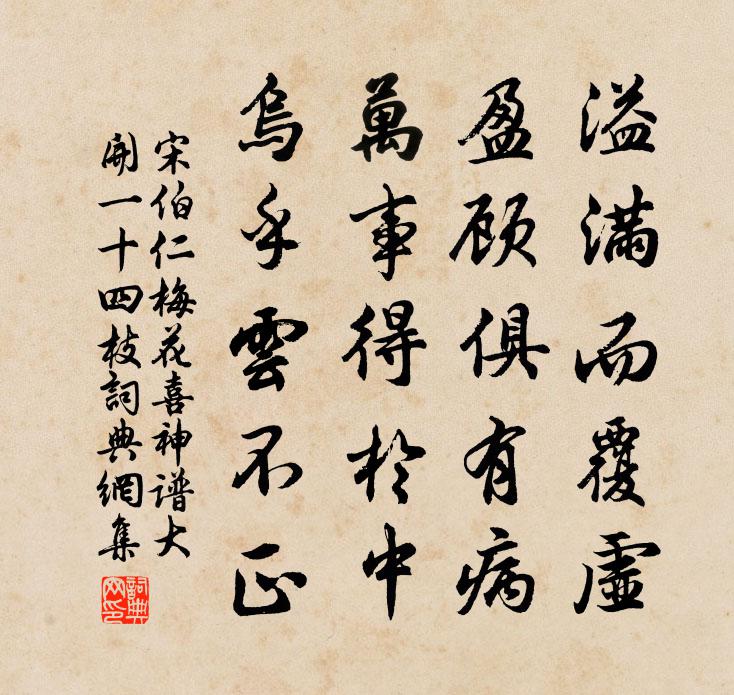 溢滿而覆虛
盈顾俱有病
萬事得於中
烏乎雲不正
宋伯仁梅花喜神谱大
開一十四枝詞典網集
詞典
网印